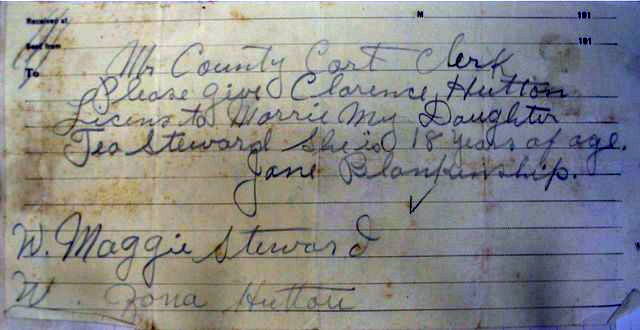 Received at M 191
Sent from 191
To Mr County Cort Clerk
Please give Clarence Hutton
Licens to Marrie My Daughter
Tea Steward She is 18 years of age.
Jane Blankenship.
W. Maggie Steward
W Zona Hutton